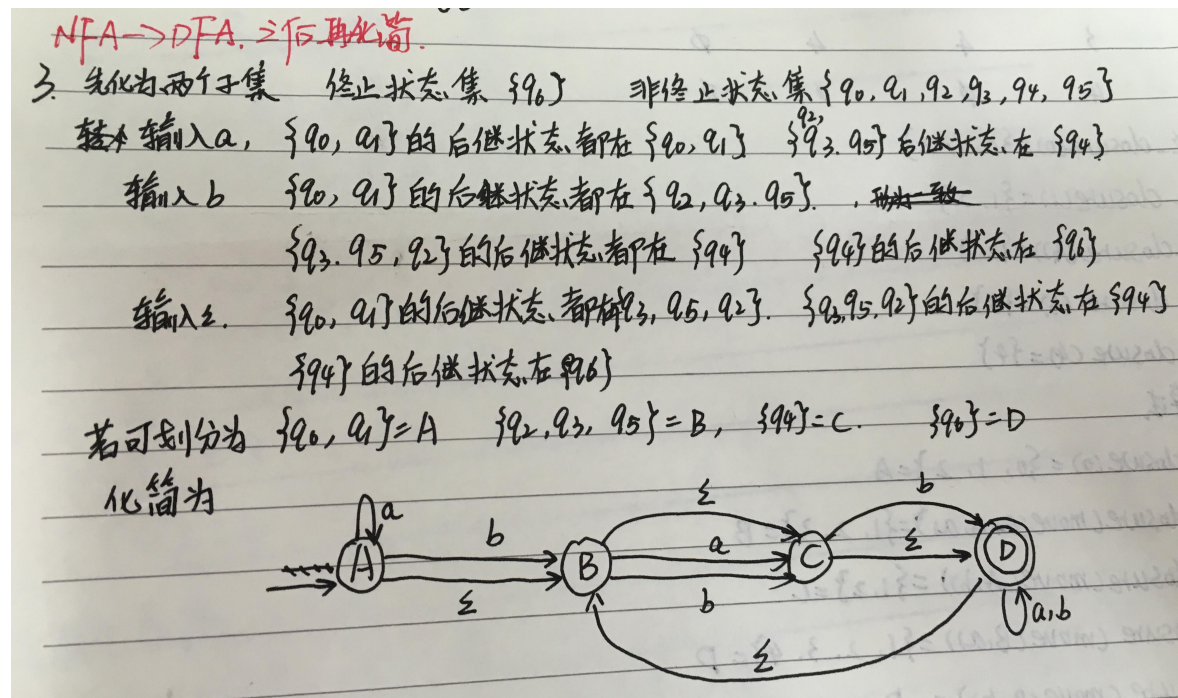 NFA→DFA. 之后再化简.
3. 先化为两个子集 终止状态集{q6} 非终止状态集{q0, q1, q2, q3, q4, q5}
输入a, {q0, q1}的后继状态都在{q0, q1} {q2, q3. q5}后继状态在{q4}
输入b {q0, q1}的后继状态都在{q2, q3. q5}.
{q3. q5, q2}的后继状态都在{q4} {q4}的后继状态在{q6}
输入Σ. {q0, q1}的后继状态都在{q3, q5, q2}. {q3, q5, q2}的后继状态在{q4}
{q4}的后继状态在{q6}
若可划分为 {q0, q1}=A {q2, q3, q5}=B, {q4}=C. {q6}=D
化简为
Σ b
a b a Σ
A B C D
Σ b a,b
Σ